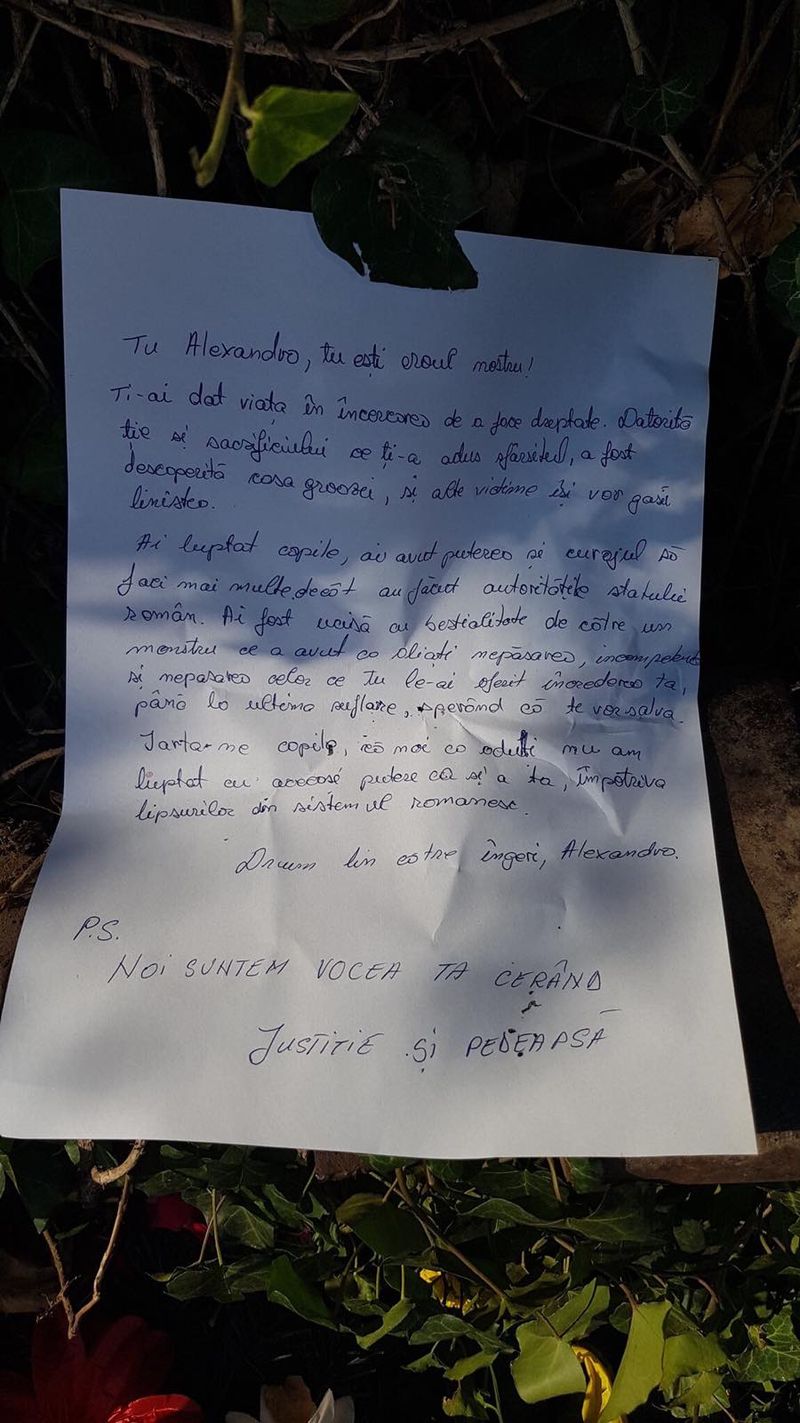 Tu Alexandra, tu ești eroul nostru!
Ti-ai dat viața în încercarea de a face dreptate. Datorită
ție si sacrificiului ce ți-a adus sfarsitul, a fost
descoperită casa groazei, si alte victime își vor gasi
linistea.
Ai luptat copile, ai avut puterea și curajul să
faci mai multe decât au făcut autoritățile statului
român. Ai fost ucisă cu bestialitate de către un
monstru ce a avut ca aliați nepăsarea, incompetența
si nepasarea celor ce Tu le-ai oferit încrederea ta,
până la ultima suflare, sperând că te vor salva.
Iarta-me copile, că noi ca adulți nu am
luptat cu aceeasi putere ca si a ta, împotriva
lipsurilor din sistemul romanesc.
Drum lin catre îngeri, Alexandra.
P.S.
NOI SUNTEM VOCEA TA CERÂND
JUSTITIE ȘI PEDEAPSĂ